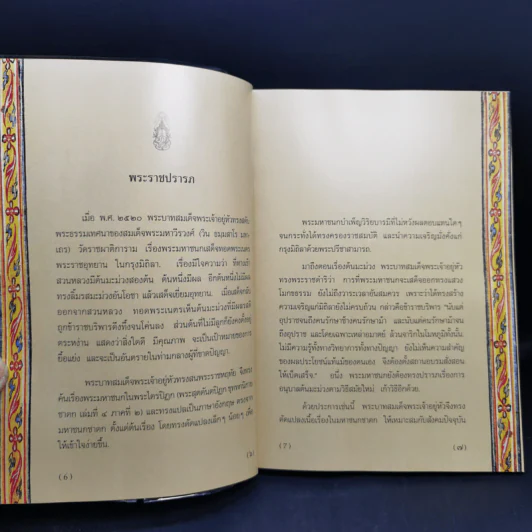 พระราชปรารภ
เมื่อ พ.ศ. ๒๕๒๐ พระบาทสมเด็จพระเจ้าอยู่หัวทรงสดับ
พระธรรมเทศนาของสมเด็จพระมหาวีรวงศ์ (วิน ธมฺมสาโร มหา
เถร) วัดราชผาติการาม เรื่องพระมหาชนกเสด็จทอดพระเนตร
พระราชอุทยาน ในกรุงมิถิลา เรื่องมีใจความว่า ที่ทางเข้า
สวนหลวงมีต้นมะม่วงสองต้น ต้นหนึ่งมีผล อีกต้นหนึ่งไม่มีผล
ทรงลิ้มรสมะม่วงอันโอชา แล้วเสด็จเยี่ยมอุทยาน เมื่อเสด็จกลับ
ออกจากสวนหลวง ทอดพระเนตรเห็นต้นมะม่วงที่มีผลรสดี
ถูกข้าราชบริพารดึงทึ้งจนโค่นลง ส่วนต้นที่ไม่มีลูกก็ยังคงตั้งอยู่
ตระหง่าน แสดงว่าสิ่งใดดี มีคุณภาพ จะเป็นเป้าหมายของการ
ยื้อแย่ง และจะเป็นอันตรายในท่ามกลางผู้ที่ขาดปัญญา
พระบาทสมเด็จพระเจ้าอยู่หัวทรงสนพระราชหฤทัย จึงทรง
ค้นเรื่องพระมหาชนกในพระไตรปิฎก (พระสุตตันตปิฎก ขุททกนิกาย
ชาดก เล่มที่ ๔ ภาคที่ ๒) และทรงแปลเป็นภาษาอังกฤษ ตรงจาก
มหาชนกชาดก ตั้งแต่ต้นเรื่อง โดยทรงดัดแปลงเล็กๆ น้อยๆ เพื่อ
ให้เข้าใจง่ายขึ้น.
(6)
พระมหาชนกบำเพ็ญวิริยบารมีที่ไม่หวังผลตอบแทนใดๆ
จนกระทั่งได้ทรงครองราชสมบัติ และนำความเจริญมั่งคั่งแก่
กรุงมิถิลาด้วยพระปรีชาสามารถ.
มาถึงตอนเรื่องต้นมะม่วง พระบาทสมเด็จพระเจ้าอยู่หัว
ทรงพระราชดำริว่า การที่พระมหาชนกจะเสด็จออกทรงแสวง
โมกขธรรม ยังไม่ถึงวาระเวลาอันสมควร เพราะว่าได้ทรงสร้าง
ความเจริญแก่มิถิลายังไม่ครบถ้วน กล่าวคือข้าราชบริพาร "นับแต่
อุปราชจนถึงคนรักษาช้างคนรักษาม้า และนับแต่คนรักษาม้าจน
ถึงอุปราช และโดยเฉพาะเหล่าอมาตย์ ล้วนจาริกในโมหภูมิทั้งนั้น.
ไม่มีความรู้ทั้งทางวิทยาการทั้งทางปัญญา ยังไม่เห็นความสำคัญ
ของผลประโยชน์แท้แม้ของตนเอง จึงต้องตั้งสถานอบรมสั่งสอน
ให้เบ็ดเสร็จ." อนึ่ง พระมหาชนกยังต้องทรงปรารภเรื่องการ
อนุบาลต้นมะม่วงตามวิธีสมัยใหม่ เก้าวิธีอีกด้วย.
ด้วยประการเช่นนี้ พระบาทสมเด็จพระเจ้าอยู่หัวจึงทรง
ดัดแปลงเนื้อเรื่องในมหาชนกชาดก ให้เหมาะสมกับสังคมปัจจุบัน
(7)
(๗)